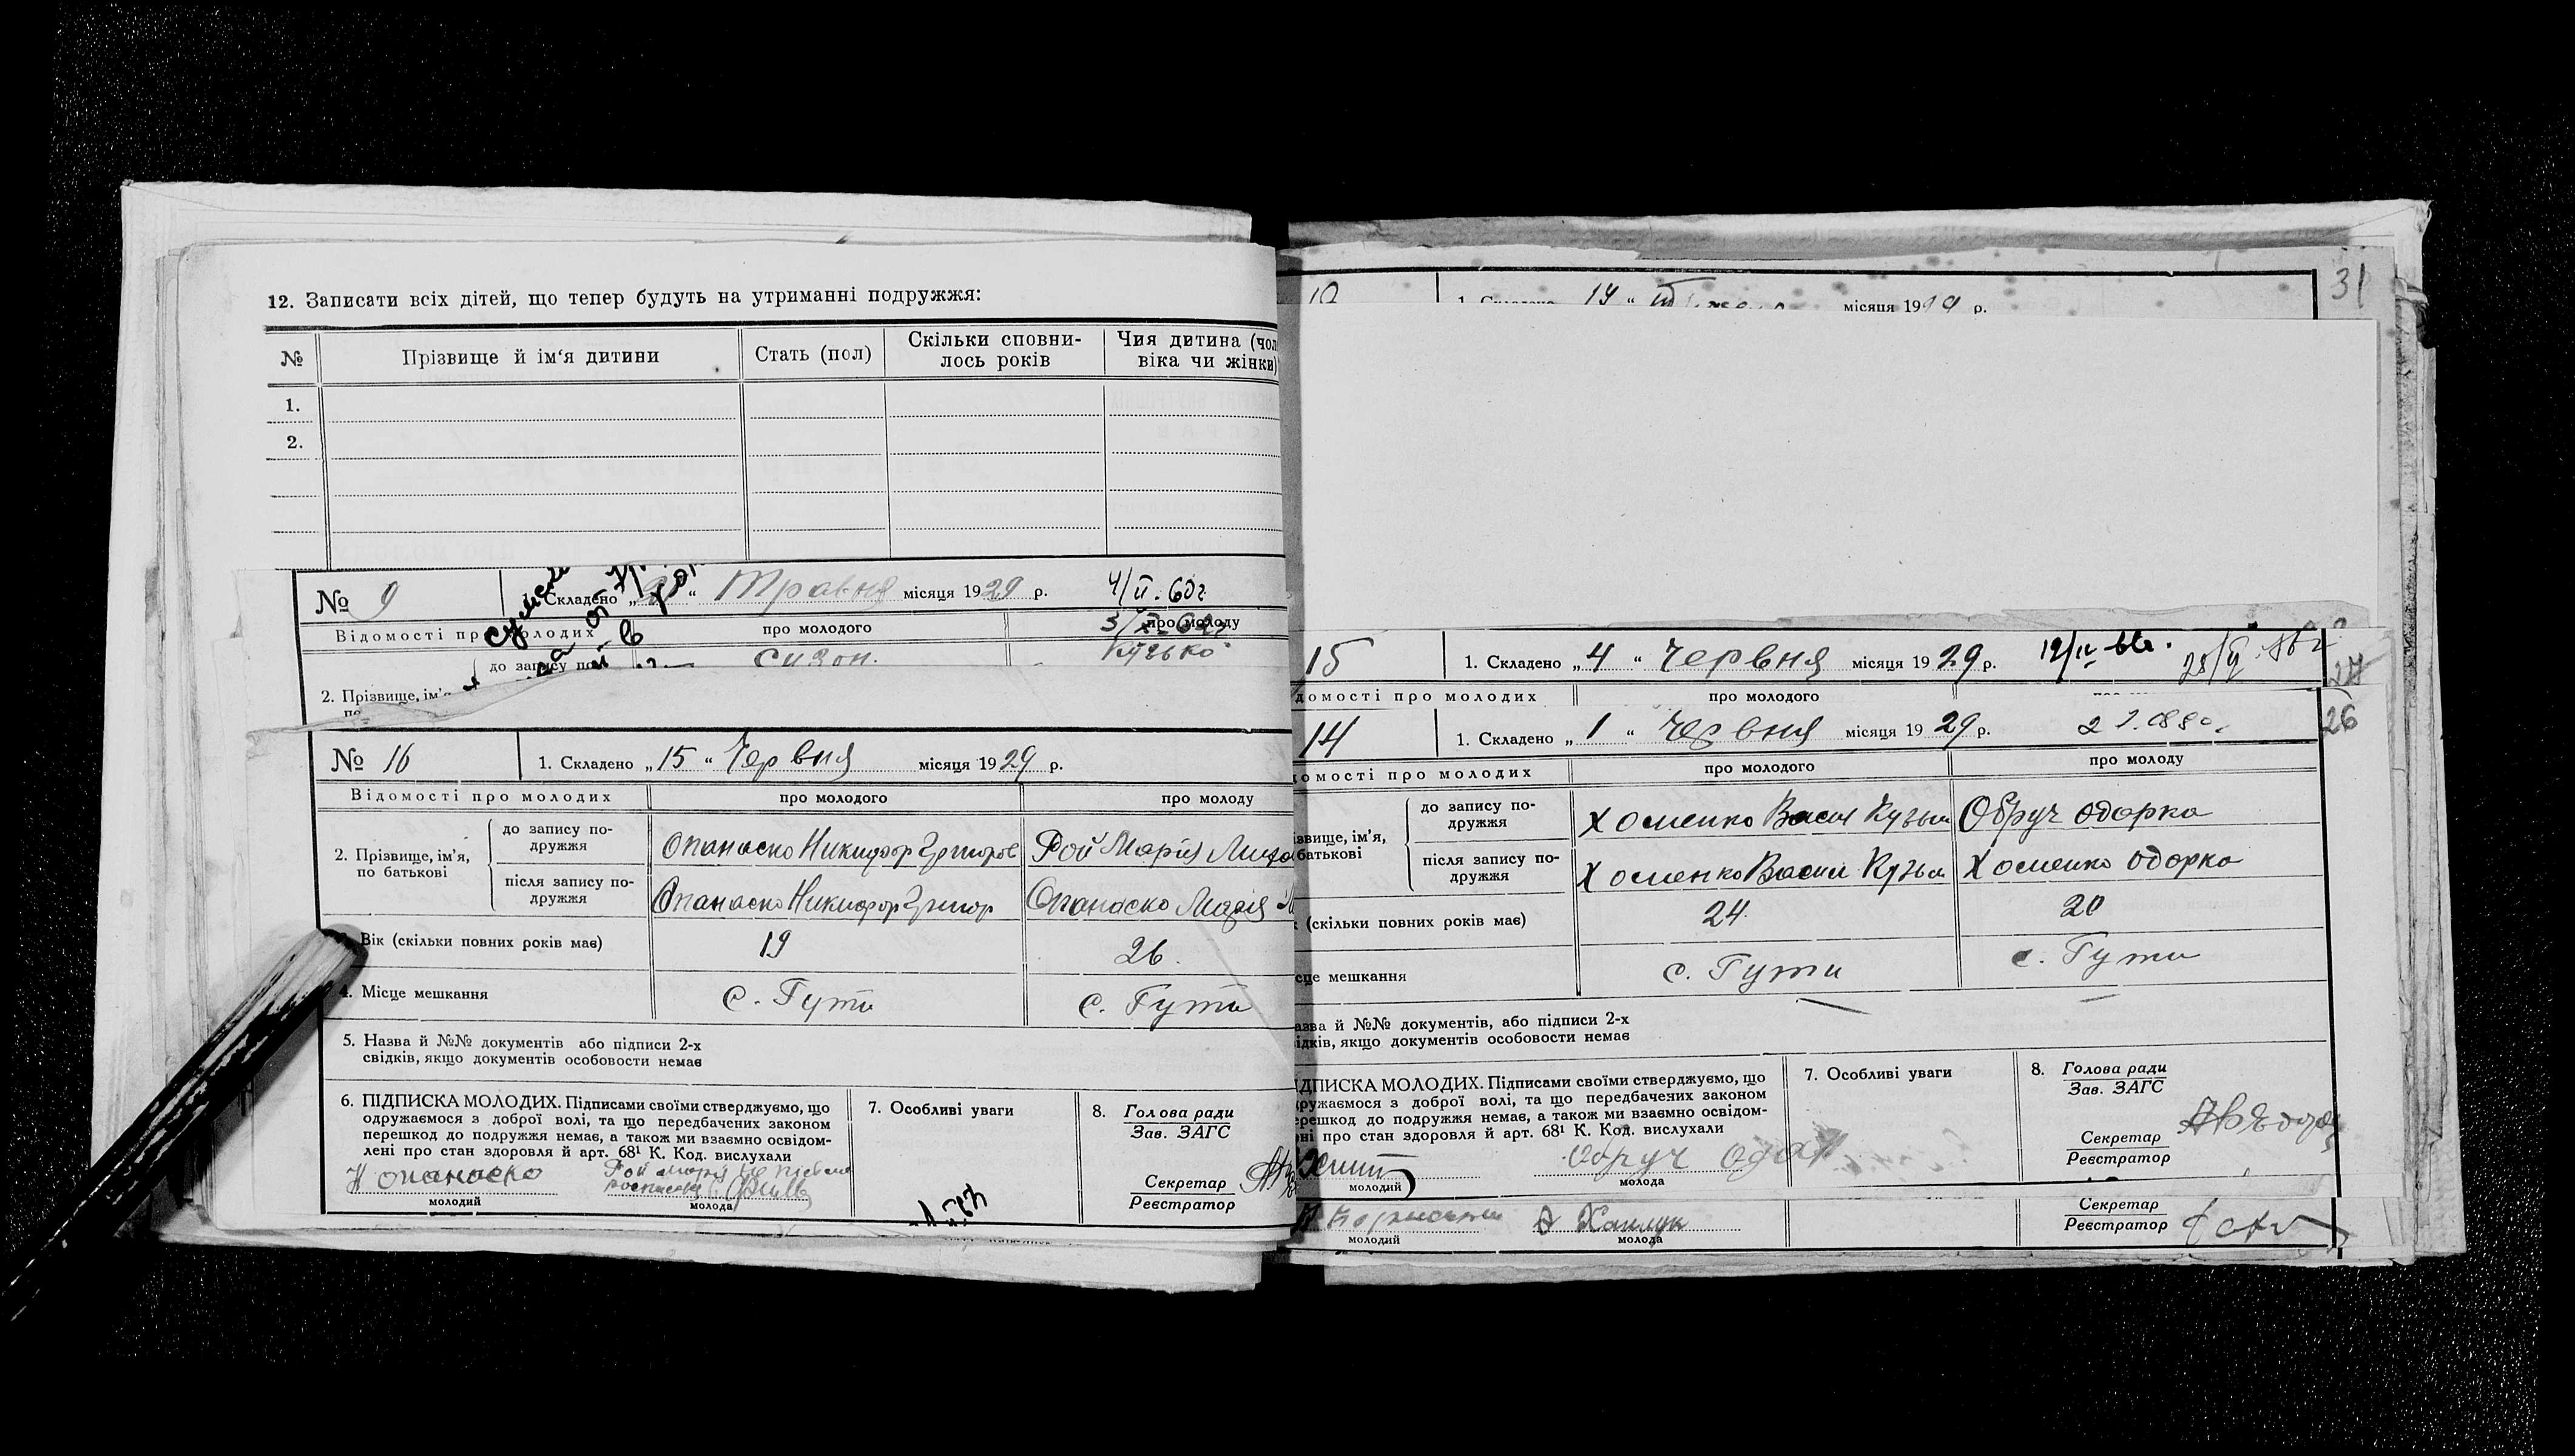 12. Записати всіх дітей, що тепер будуть на утриманні подружжя:
№ Прізвище й ім'я дитини Стать (пол) Скільки сповни- Чия дитина (чол
лось років віка чи жінки)
1.
2.
№ 9 Складено „ “ Травня місяця 1929 р. 4/II. 60г.
Відомості про молодих про молодого про молоду
до запису по Сизон. Кузько
2. Прізвище, ім'я
№ 16 1. Складено „15“ Червня місяця 1929 р.
Відомості про молодих про молодого про молоду
2. Прізвище, ім'я, по батькові
до запису по-дружжя Опанаско Никифор Григоров Рой Марія Миха
після запису по-дружжя Опанаско Никифор Григор Опанаско Марія
Вік (скільки повних років має) 19 26.
4. Місце мешкання с. Гути с. Гути
5. Назва й №№ документів або підписи 2-х
свідків, якщо документів особовости немає
6. ПІДПИСКА МОЛОДИХ. Підписами своїми стверджуємо, що
одружаємося з доброї волі, та що передбачених законом
перешкод до подружжя немає, а також ми взаємно освідом-
лені про стан здоровля й арт. 68¹ К. Код. вислухали
Н Опанаско Рой Марія
молодий молода
7. Особливі уваги
8. Голова ради
Зав. ЗАГС
Секретар
Реєстратор
31
1. Складено 14 “ місяця 19 р.
15 1. Складено „4“ Червня місяця 1929 р. 12/IV
домості про молодих про молодого
14 1. Складено „1“ Червня місяця 1929 р. 26
домості про молодих про молодого про молоду
звище, ім'я,
батькові
до запису по-дружжя Хоменко Васил Кузьм Обруч Одарка
після запису по-дружжя Хоменко Васил Кузьм Хоменко Одарка
(скільки повних років має) 24. 20
сце мешкання с. Гути с. Гути
азва й №№ документів, або підписи 2-х
ідків, якщо документів особовости немає
ІДПИСКА МОЛОДИХ. Підписами своїми стверджуємо, що
ружаємося з доброї волі, та що передбачених законом
ерешкод до подружжя немає, а також ми взаємно освідом-
ні про стан здоровля й арт. 68¹ К. Код. вислухали
Обруч
молодий молода
7. Особливі уваги
8. Голова ради
Зав. ЗАГС
Секретар
Реєстратор
молодий молода
Секретар
Реєстратор